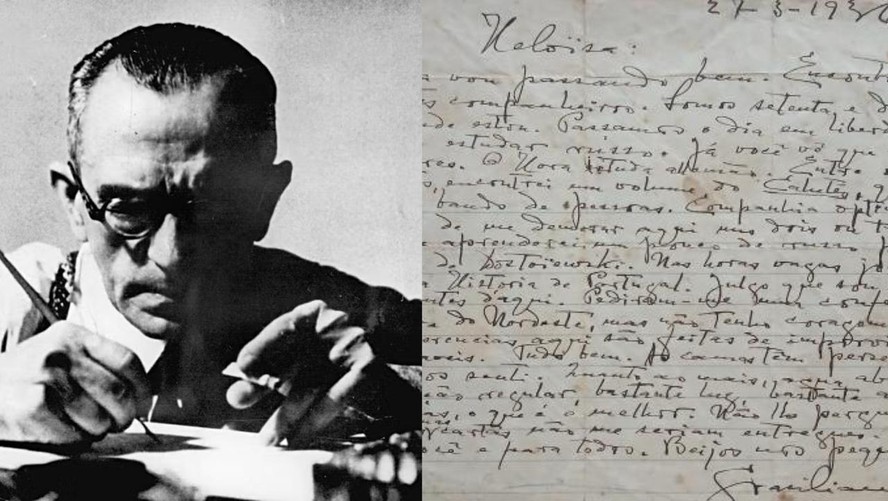 27-3-1936
Heloïsa:
vou passando bem.
companheiros. Somos setenta e d
estou. Passamos o dia em liber
estudar russo. Já você vê que
res. O Hora estuda alemão. Entre
encontrei um volume do Cahetés, q
bando de pessoas. Companhia
de me demorar aqui uns dois ou t
aprenderei um pouco de russo
de Dostoiewski. Nas horas vagas jo
Historia de Portugal. Julgo que sou
d'aqui. Pediram-me uma conf
do Nordeste, mas não tenho coragem
rencias aqui são feitas de improvi
Tudo bem. As camas têm perse
senti. Quanto ao mais, agua ab
regular, bastante luz, bastante
o que é o melhor. Não lhe pergu
cartas não me seriam entregues.
e para todos. Beijos nos peque
Graciliano